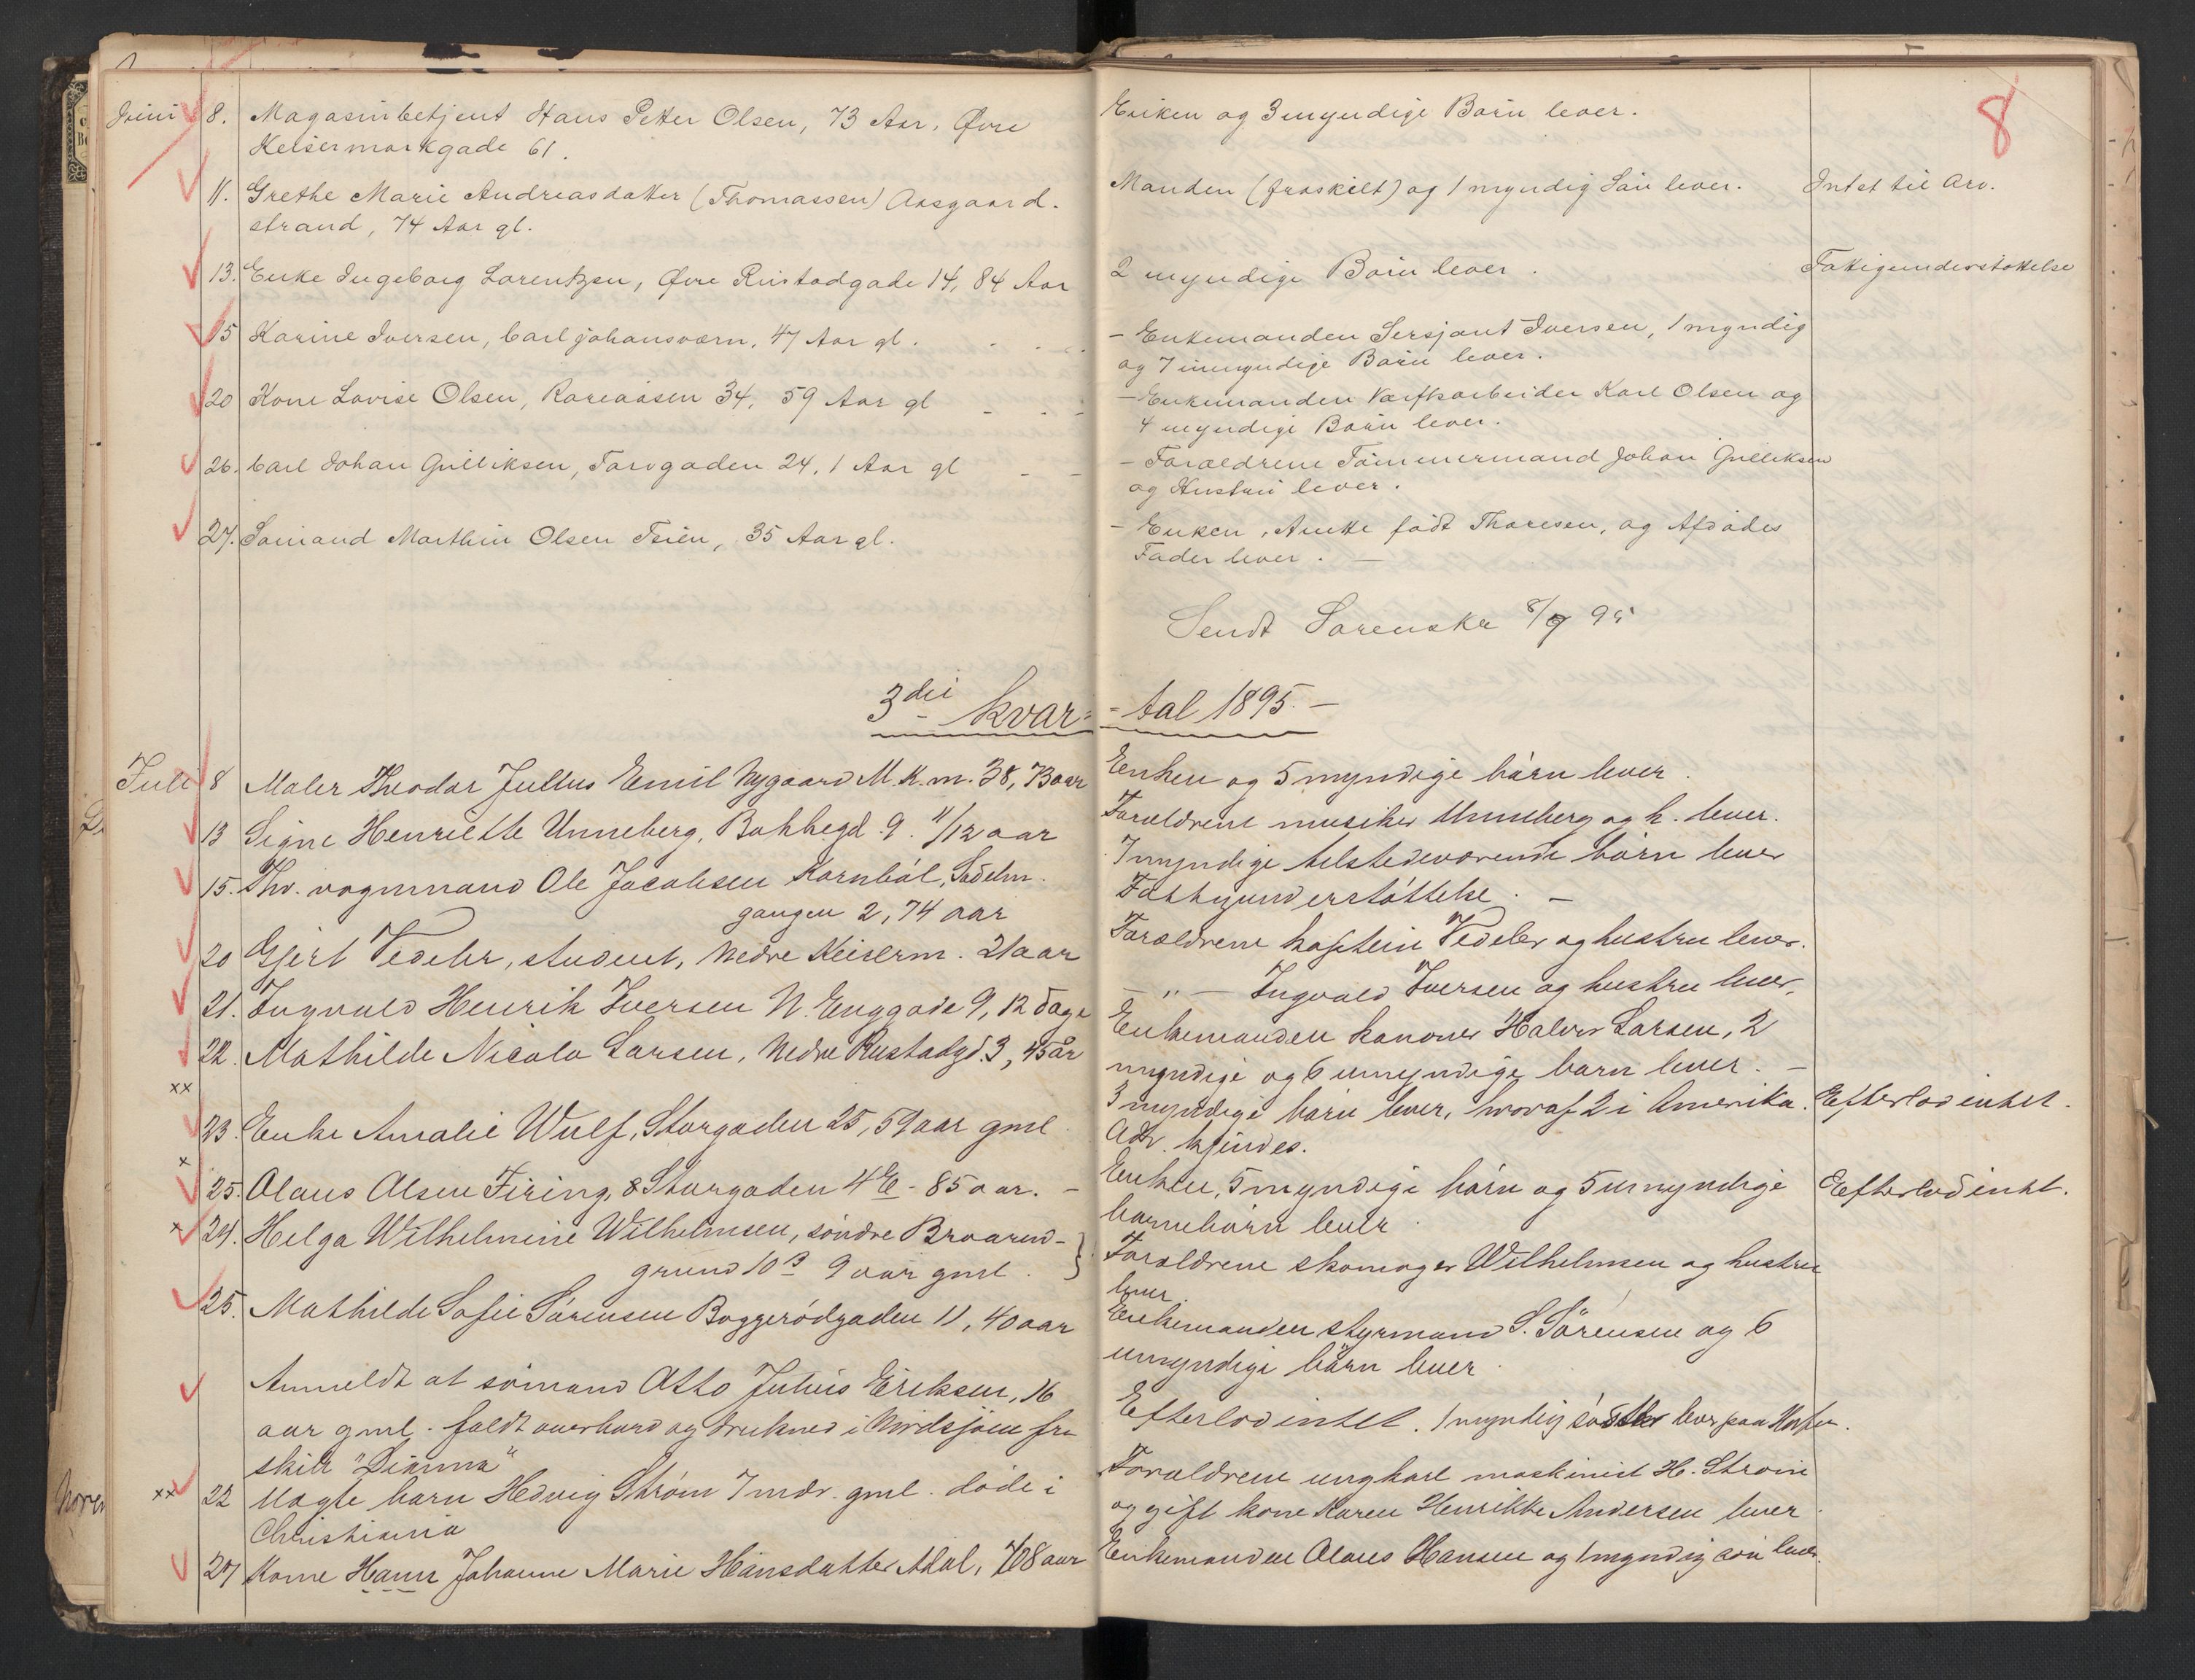 8
Juni 8. Magasinbetjent Hans Petter Olsen, 73 Aar, Øvre
Keisermarkgade 61.
Enken og 3 myndige Børn lever.
11. Grethe Marie Andreasdatter (Thomassen) Aasgaard-
strand, 74 Aar gl.
Manden (fraskilt) og 1 myndig Søn lever. Intet til Arv.
13. Enke Ingeborg Lorentzen, Øvre Rustadgade 14, 84 Aar
2 myndige Børn lever. Fattigunderstøttelse
15 Karine Iversen, Carljohansværn, 47 Aar gl.
- Enkemanden Sersjant Iversen, 1 myndig
og 7 umyndige Børn lever.
20 Kone Lovise Olsen, Roreaasen 34, 59 Aar gl
- Enkemanden Værftsarbeider Karl Olsen og
4 myndige Børn lever.
26. Carl Johan Gulliksen, Torvgaden 24, 1 Aar gl
- Forældrene Tømmermand Johan Gulliksen
og Hustru lever.
27. Sømand Marthin Olsen Teien, 35 Aar gl.
- Enken, Anette født Thoresen, og Afdødes
Fader lever. -
Sendt Sorenskr 8/9 95
3die kvar=
=tal 1895. -
Juli 8 Maler Theodor Julius Emil Nygaard M.K.m. 38, 73 aar
Enken og 5 myndige børn lever.
13 Signe Henriette Unneberg, Bakkegd. 9. 11/12 aar
Forældrene musiker Unneberg og h. lever.
15. Fhv. vognmand Ole Jacobsen Kornbøl, Sadelm.
gangen 2, 74 aar
7 myndige tilstedeværende børn lever
Fattigunderstøttelse. -
20 Gjert Vedeler, student, Nedre Keiserm. 21 aar
Forældrene kaptein Vedeler og hustru lever.
21. Ingvald Henrik Iversen N. Enggade 9, 12 dage
- " - Ingvald Iversen og hustru lever,
22. Mathilde Nicola Larsen, Nedre Rustadgd. 3, 45 år
Enkemanden kanoner Halvor Larsen, 2
myndige og 6 umyndige barn lever. -
xx
23. Enke Amalie Wulf, Storgaden 25, 59 aar gml.
3 myndige børn lever, hvoraf 2 i Amerika. Efterlod intet.
Adr. kjendes.
x
25. Olaus Olsen Firing, Storgaden 4 E - 85 aar. -
Enken, 5 myndige børn og 5 umyndige Efterlod intet.
barnebørn lever.
x 24. Helga Wilhelmine Wilhelmsen, søndre Braarud-
grund 10 B 9 aar gml.
Forældrene skomager Wilhelmsen og hustru
lever.
25. Mathilde Sofie Sørensen Baggerødgaden 11, 40 aar
Enkemanden styrmand S. Sörensen og 6
umyndige børn lever.
Anmeldt at sømand Otto Julius Eriksen, 16
aar gml. faldt overbord og druknet i Nordsjøen fra
skib "Dianna"
Efterlod intet. 1 myndig søster lever paa Horten.
xx 22 Uægte barn Hedvig Strøm 7 mdr. gml. døde i
Christiania
Forældrene ungkarl maskinist H. Strøm
og gift kone Karen Henrikke Andersen lever.
27 Kone Hanna Johanne Marie Hansdatter Adal, 78 aar
Enkemanden Olaus Hansen og 1 myndig søn lever.